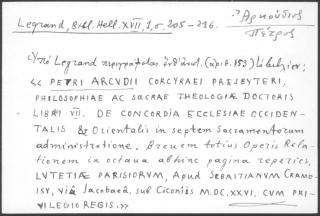 Legrand, Bibl. Hell. XVII, 1, σ. 205-216.
Ἀρκούδιος
Πέτρος
Ὑπὸ Legrand περιγράφεται (ἀριθ. 153)
« PETRI ARCUDII CORCYRAEI PRESBYTERI,
PHILOSOPHIAE AC SACRAE THEOLOGIAE DOCTORIS
LIBRI VII. DE CONCORDIA ECCLESIAE OCCIDEN-
TALIS & Orientalis in septem Sacramentorum
administratione. Breuem totius Operis Rela-
tionem in octaua abhinc pagina reperies.
LUTETIAE PARISIORUM, Apud SEBASTIANUM CRAMO-
ISY, viâ Jacobaeâ, sub Ciconiis M.DC.XXVI. CUM PRI-
VILEGIO REGIS.»